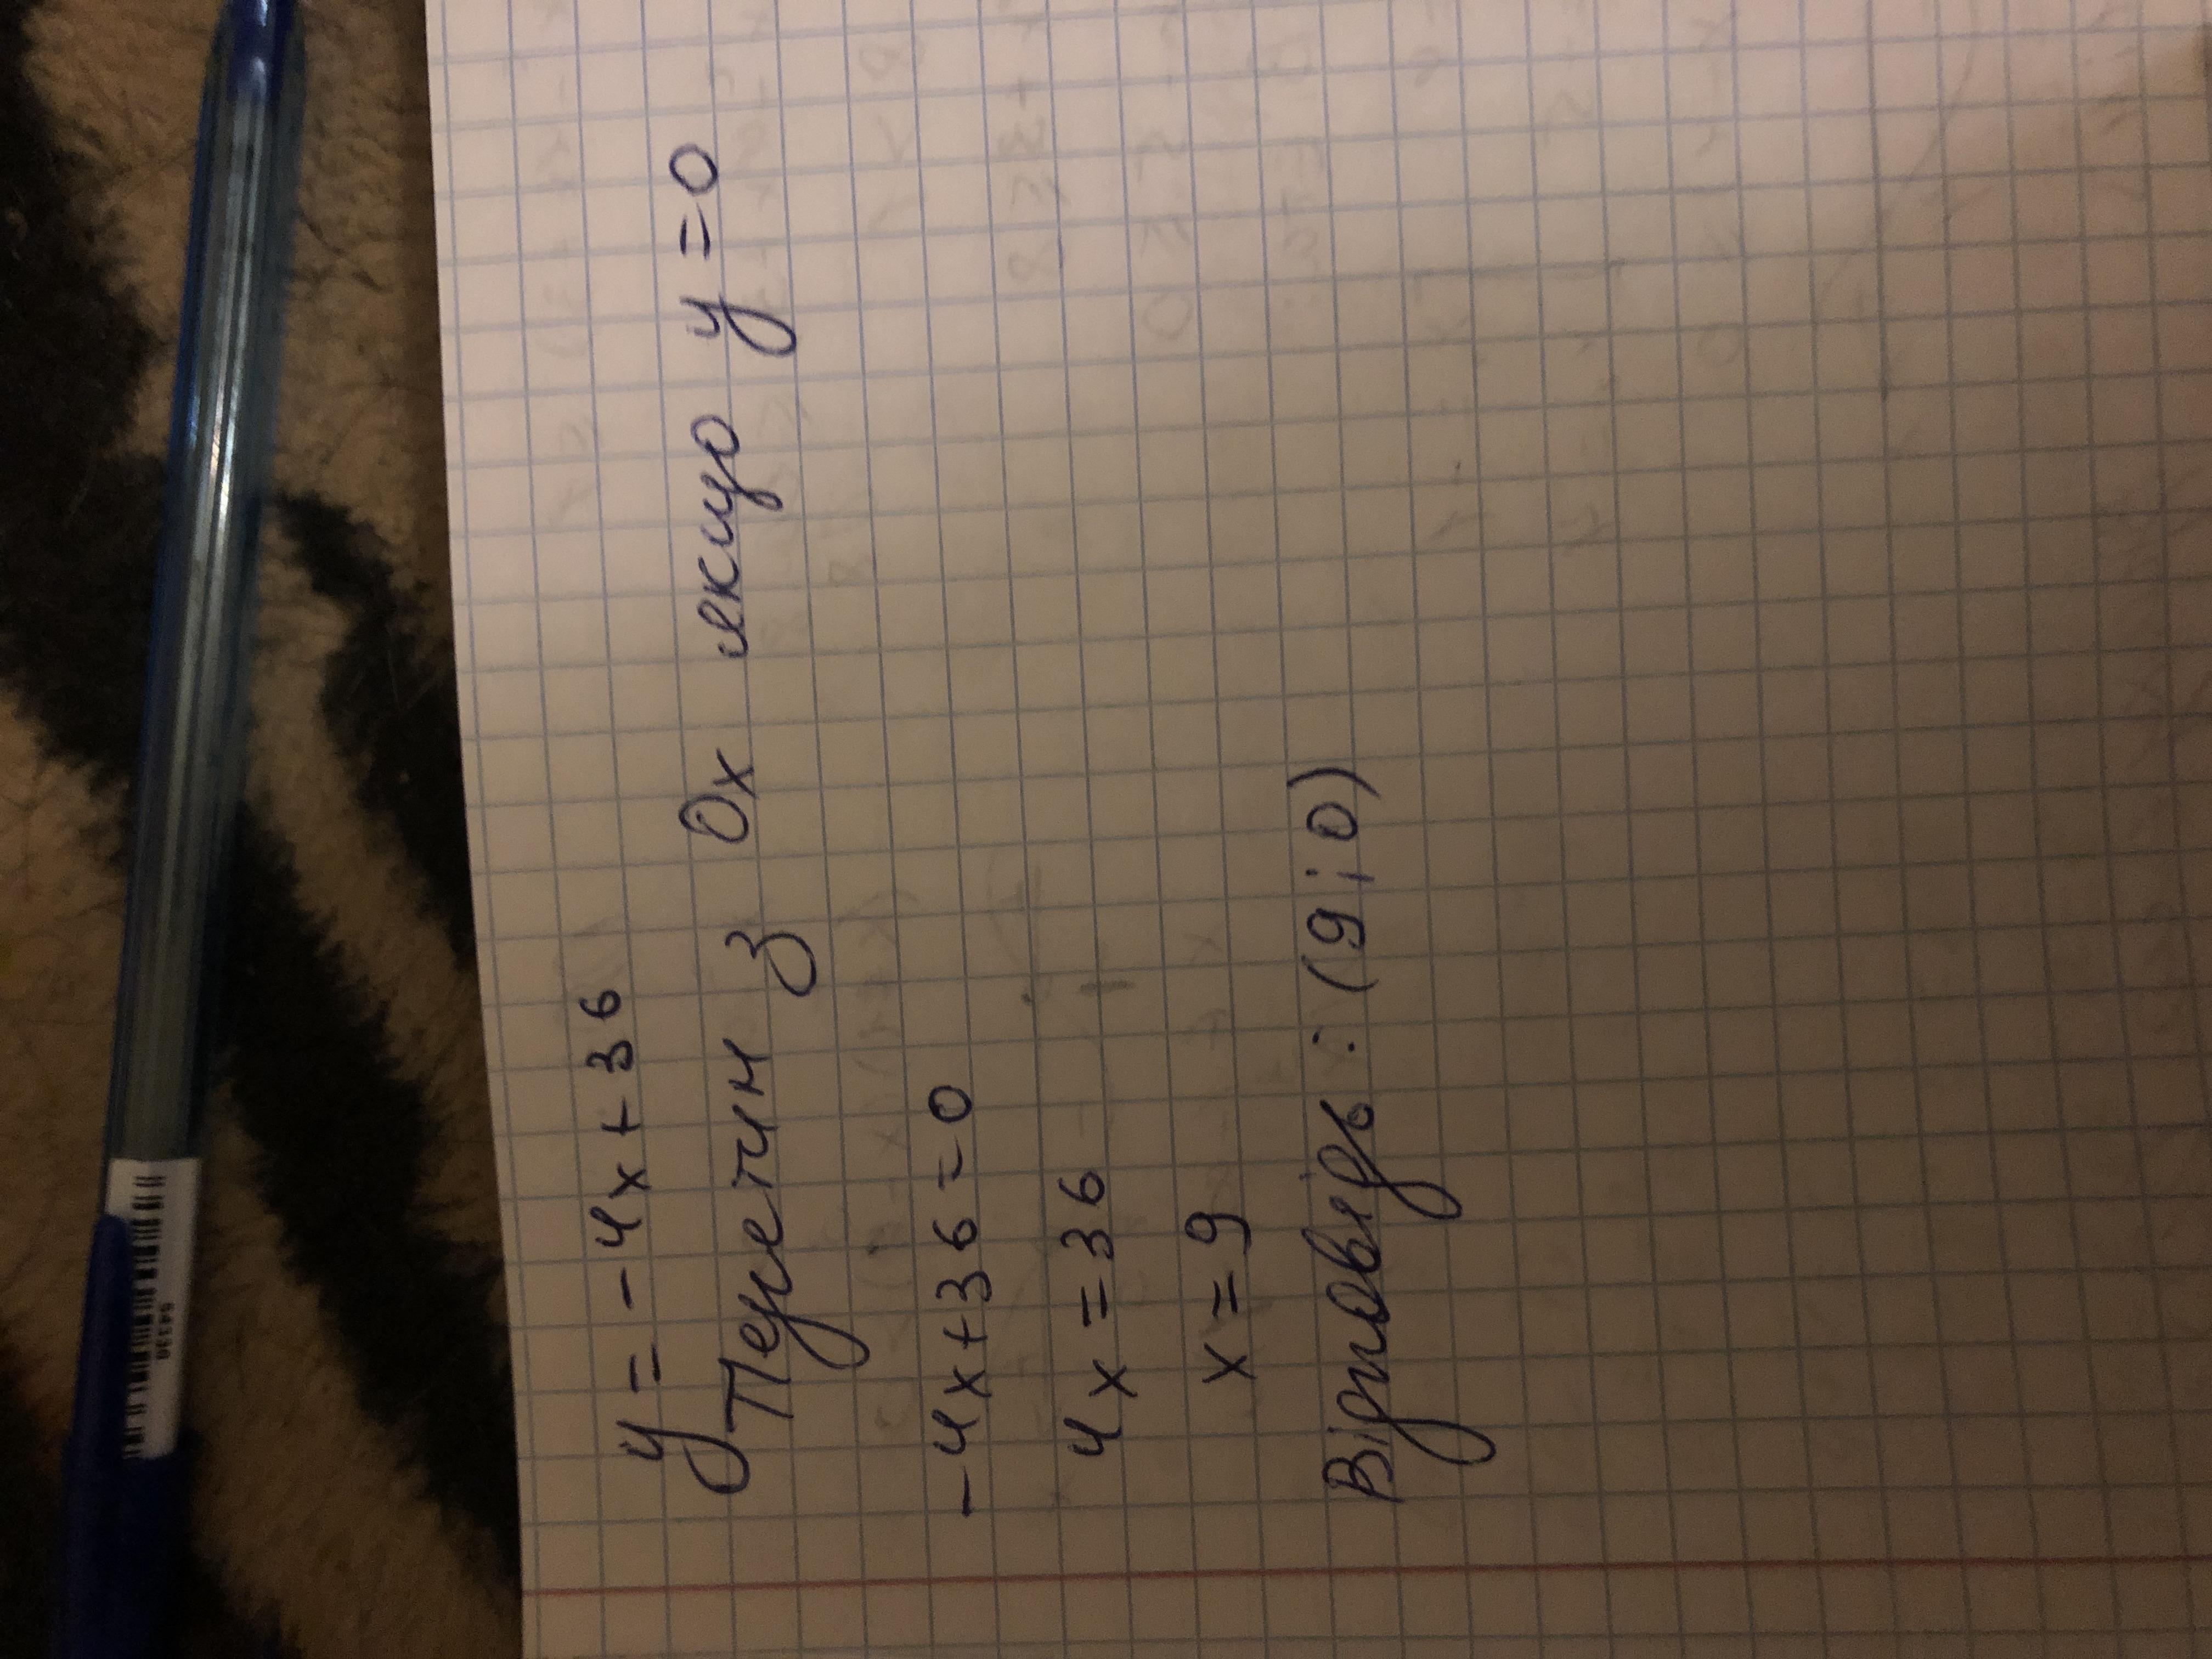 y = -4x + 36
Перетин з Ox якщо y = 0
-4x + 36 = 0
4x = 36
x = 9
Відповідь : (9 ; 0)
54339